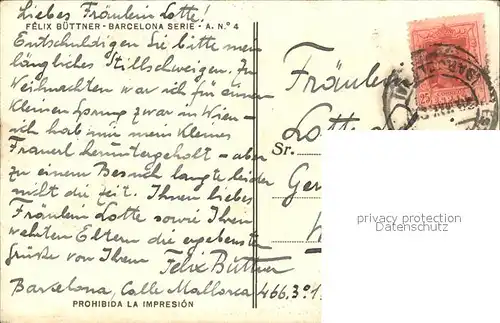 Liebes Fräulein Lotte!
FÉLIX BÜTTNER - BARCELONA SERIE - A. N.º 4
Entschuldigen Sie bitte mein
längliches Stillschweigen. Zu
Weihnachten war ich für einen
kleinen Sprung zwar in Wien -
ich hab mir mein kleines
Frauerl heruntergeholt - aber
zu einem Besuch langte leider
nicht die Zeit. Ihnen liebes
Fräulein Lotte sowie Ihren
werten Eltern die ergebensten
Grüße von Ihrem Felix Büttner
Barcelona, Calle Mallorca 466.3º1.
PROHIBIDA LA IMPRESIÓN
Fräulein
Lotte
Sr.
Ger
25
BARCELONA
privacy protection
Datenschutz